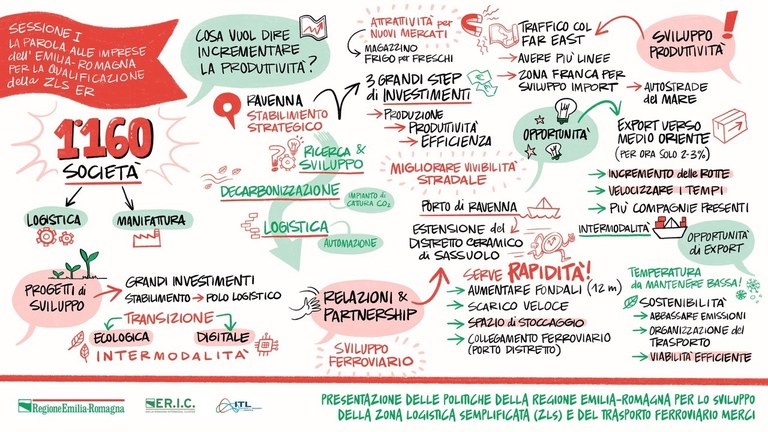 SESSIONE I
LA PAROLA ALLE IMPRESE
dell'EMILIA-ROMAGNA
PER LA QUALIFICAZIONE
della ZLS ER
1'160
SOCIETÀ
LOGISTICA
MANIFATTURA
PROGETTI di
SVILUPPO
GRANDI INVESTIMENTI
STABILIMENTO → POLO LOGISTICO
TRANSIZIONE
ECOLOGICA
DIGITALE
INTERMODALITÀ
COSA VUOL DIRE
INCREMENTARE
LA PRODUTTIVITÀ?
RAVENNA
STABILIMENTO
STRATEGICO
RICERCA &
SVILUPPO
DECARBONIZZAZIONE
IMPIANTO di
CATURA CO2
LOGISTICA
AUTOMAZIONE
RELAZIONI &
PARTNERSHIP
SVILUPPO
FERROVIARIO
ATTRATTIVITÀ per
NUOVI MERCATI
MAGAZZINO
FRIGO per FRESCHI
3 GRANDI STEP
di INVESTIMENTI
→ PRODUZIONE
→ PRODUTTIVITÀ
→ EFFICIENZA
MIGLIORARE VIVIBILITÀ
STRADALE
PORTO di RAVENNA
ESTENSIONE del
DISTRETTO CERAMICO
di SASSUOLO
SERVE RAPIDITÀ!
→ AUMENTARE FONDALI (12 m)
→ SCARICO VELOCE
→ SPAZIO di STOCCAGGIO
→ COLLEGAMENTO FERROVIARIO
(PORTO DISTRETTO)
TRAFFICO COL
FAR EAST
→ AVERE PIÙ LINEE
→ ZONA FRANCA PER
SVILUPPO IMPORT
SVILUPPO
PRODUTTIVITÀ
!
→ AUTOSTRADE
del MARE
OPPORTUNITÀ
EXPORT VERSO
MEDIO ORIENTE
(PER ORA SOLO 2-3%)
→ INCREMENTO delle ROTTE
→ VELOCIZZARE I TEMPI
→ PIÙ COMPAGNIE PRESENTI
INTERMODALITÀ
OPPORTUNITÀ
di EXPORT
TEMPERATURA
da MANTENERE BASSA!
SOSTENIBILITÀ
→ ABBASSARE EMISSIONI
→ ORGANIZZAZIONE del
TRASPORTO
→ VIABILITÀ EFFICIENTE
RegioneEmilia-Romagna
E.R.I.C.
ITL
PRESENTAZIONE DELLE POLITICHE DELLA REGIONE EMILIA-ROMAGNA PER LO SVILUPPO
DELLA ZONA LOGISTICA SEMPLIFICATA (ZLS) E DEL TRASPORTO FERROVIARIO MERCI